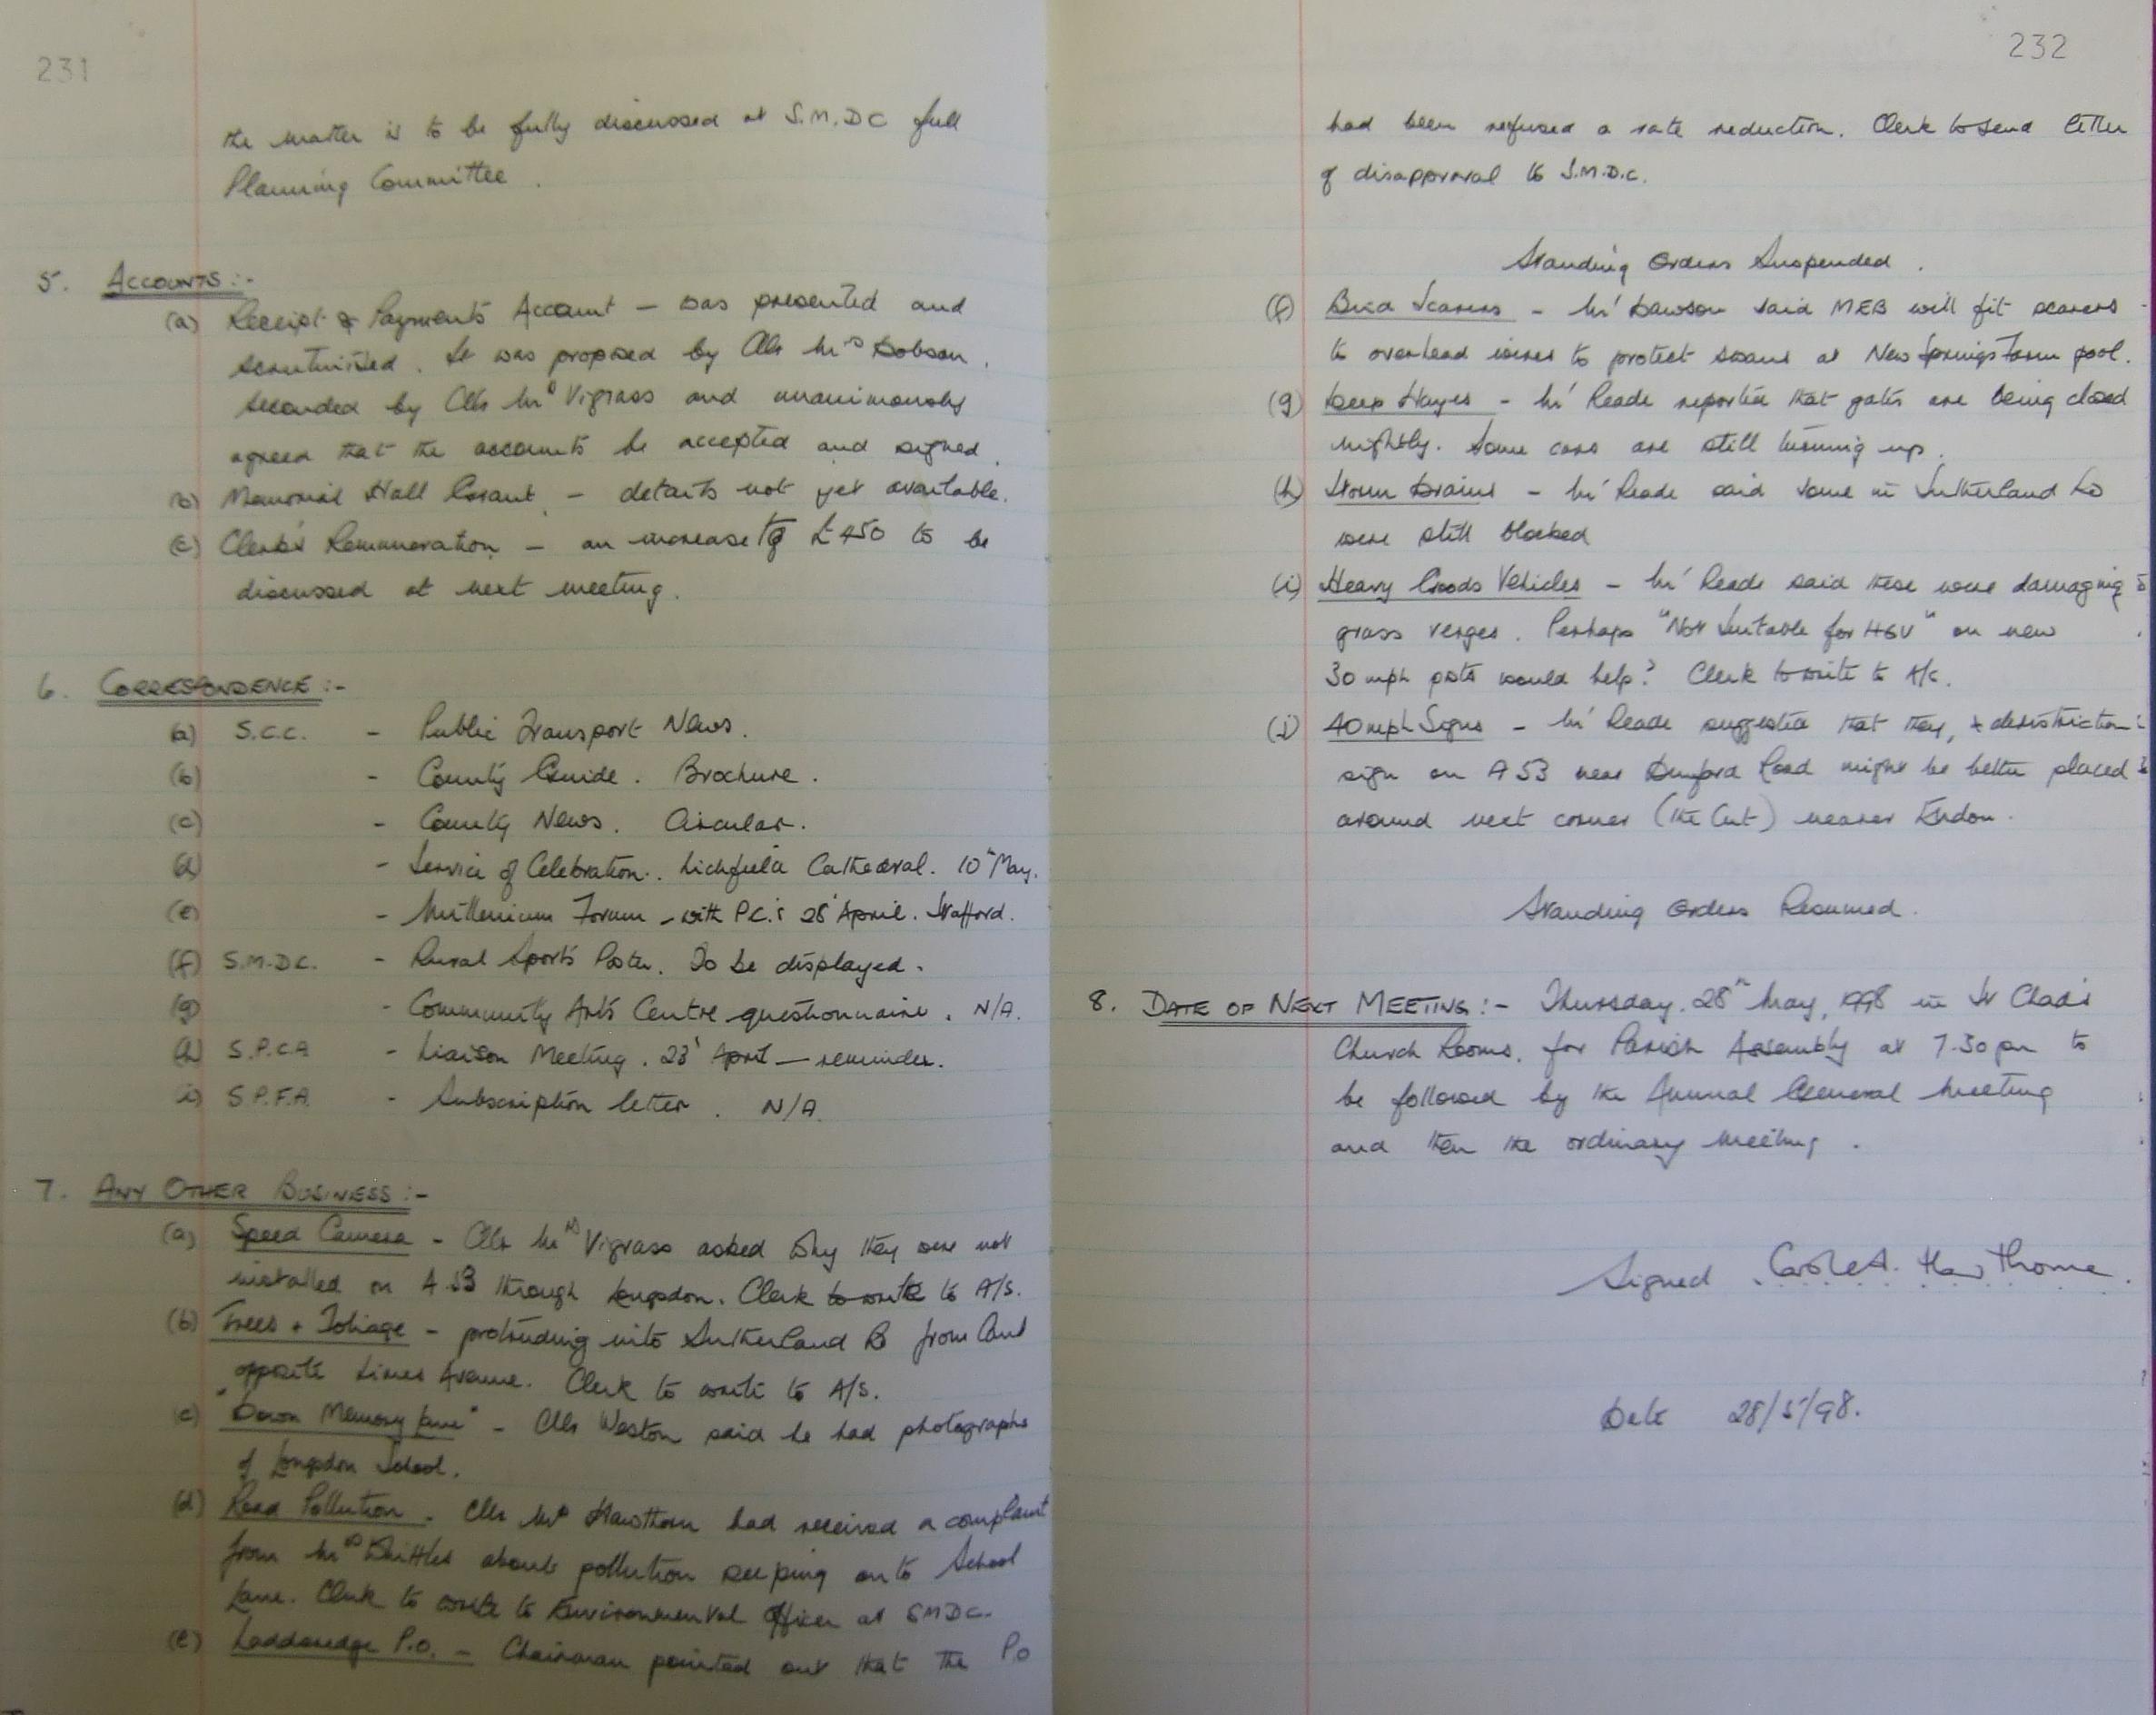 231
the matter is to be fully discussed at S.M.DC full
Planning Committee.
5. ACCOUNTS:-
(a) Receipt & Payments Account - was presented and
scrutinised. It was proposed by Cllr Mrs Dobson,
seconded by Cllr Mrs Vigrass and unanimously
agreed that the accounts be accepted and signed.
(b) Memorial Hall Grant - details not yet available.
(c) Clerk's Remuneration - an increase to £450 to be
discussed at next meeting.
6. CORRESPONDENCE:-
(a) S.C.C. - Public Transport News.
(b) - County Guide. Brochure.
(c) - County News. Circular.
(d) - Service of Celebration. Lichfield Cathedral. 10th May.
(e) - Millenium Forum - with P.C.'s 28' April. Stafford.
(f) S.M.DC. - Rural Sports Poster. To be displayed.
(g) - Community Arts Centre questionnaire. N/A.
(h) S.P.C.A - Liaison Meeting. 23' April - reminder.
(i) S.P.F.A. - Subscription letter. N/A.
7. ANY OTHER BUSINESS:-
(a) Speed Camera - Cllr Mrs Vigrass asked why they were not
installed on A53 through Longsdon. Clerk to write to A/S.
(b) Trees + Foliage - protruding into Sutherland Rd from land
opposite Limes Avenue. Clerk to write to A/S.
(c) "Down Memory Lane" - Cllr Weston said he had photographs
of Longsdon School.
(d) Road Pollution. Cllr Mrs Hawthorn had received a complaint
from Mrs Whittles about pollution seeping onto School
Lane. Clerk to write to Environmental Officer at SMDC.
(e) Ladderedge P.O. - Chairman pointed out that the P.O
232
had been refused a rate reduction. Clerk to send letter
of disapproval to S.M.D.C.
Standing Orders Suspended.
(f) Bird Scarers - Mr Dawson said MEB will fit scarers
to overhead wires to protect swans at New Springs Farm pool.
(g) Deep Hayes - Mr Reade reported that gates are being closed
nightly. Some cars are still turning up.
(h) Storm Drains - Mr Reade said some in Sutherland Rd
were still blocked
(i) Heavy Goods Vehicles - Mr Reade said these were damaging
grass verges. Perhaps "Not Suitable for HGV" on new
30 mph posts would help? Clerk to write to A/S.
(j) 40 mph Signs - Mr Reade suggested that they, + derestriction
sign on A53 near Dunford Road might be better placed
around next corner (the Cut) nearer Endon.
Standing Orders Resumed.
8. DATE OF NEXT MEETING:- Thursday. 28th May, 1998 in St Chad's
Church Rooms, for Parish Assembly at 7.30 pm to
be followed by the Annual General Meeting
and then the ordinary Meeting.
Signed Carole A. Hawthorne.
Date 28/5/98.